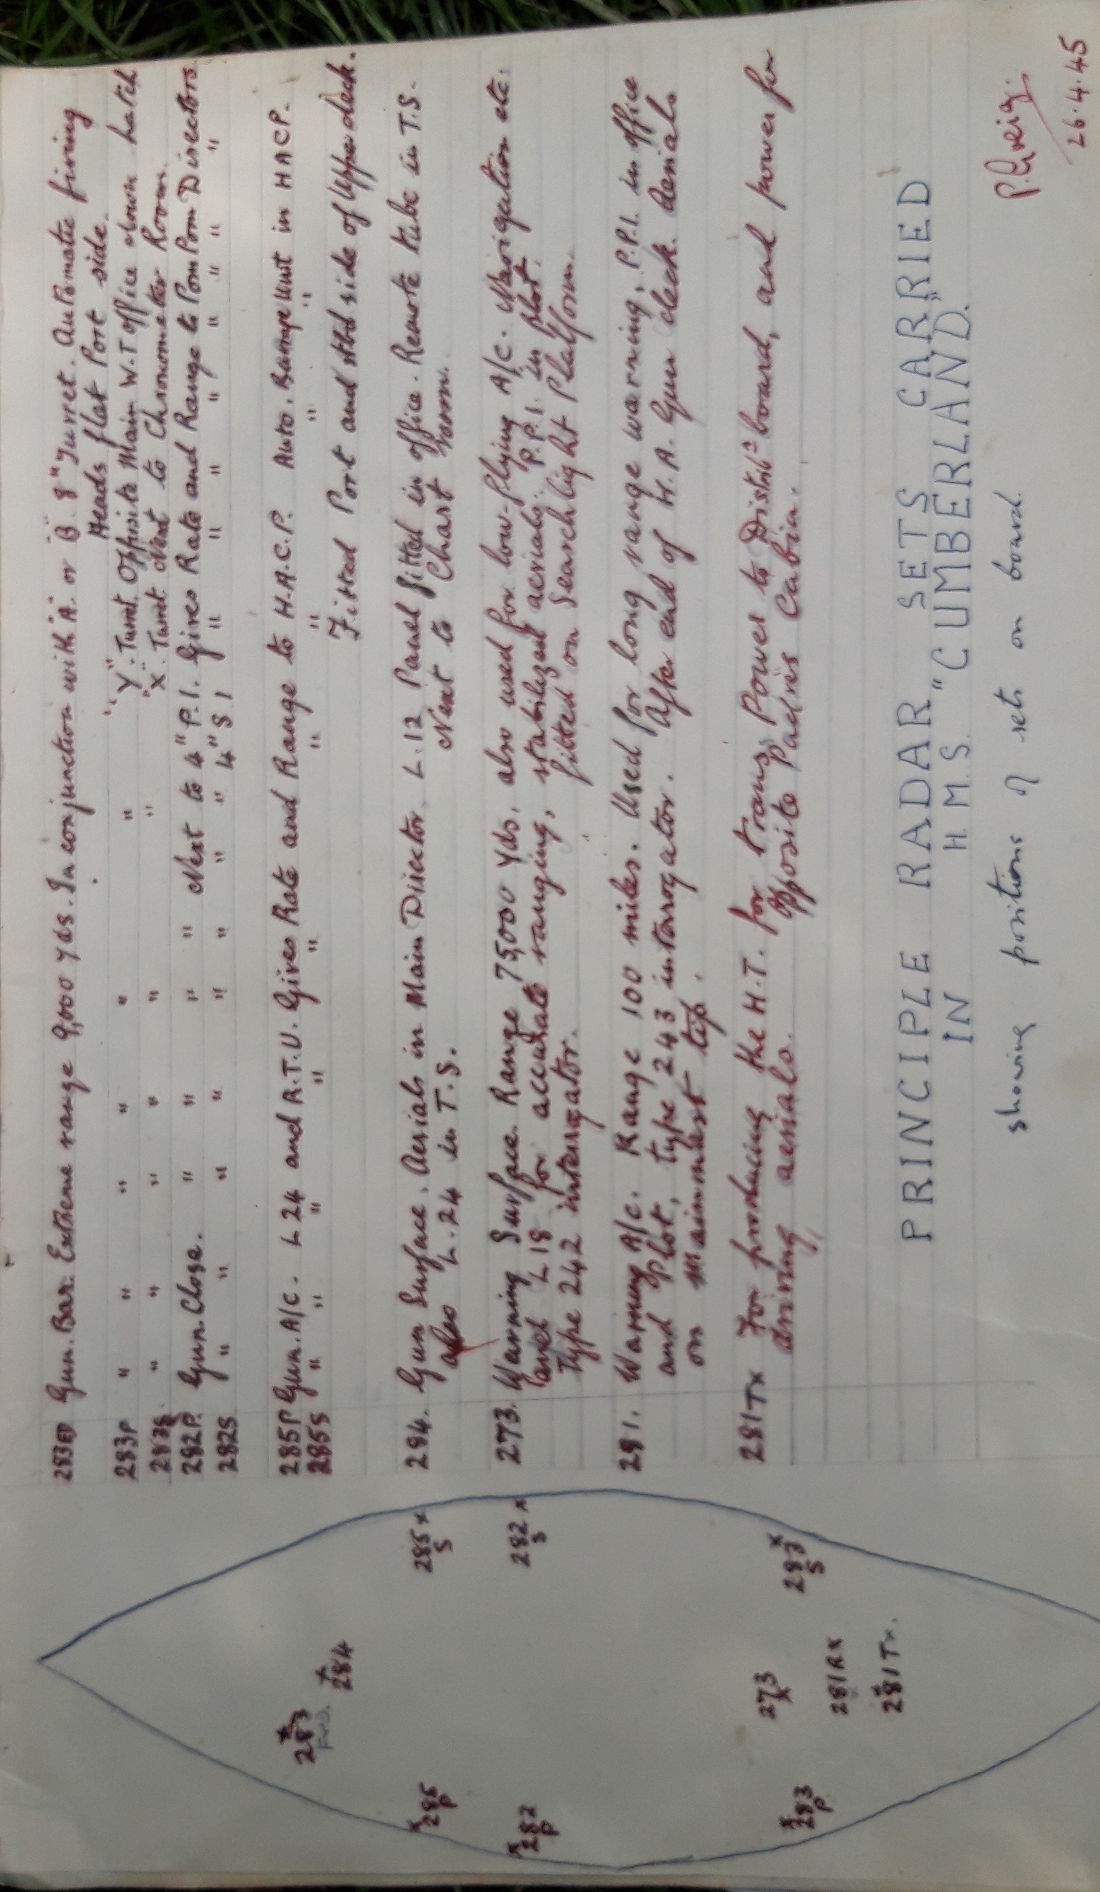 283FD Gun. Bar. Extreme range 9,000 yds. In conjunction with "A" or "B" 8" Turret. Automatic firing
Heads flat Port side.
283P " " " " " " "Y" Turret Opposite Main W.T office down hatch
283S " " " " " " "X" Turret Next to Chronometer Room.
282P. Gun. Close. " " " " Next to 4" P.1. Gives Rate and Range to Pom Pom Directors
282S " " " " " " " 4" S 1 " " " " " " "
285P Gun. A/c. L 24 and R.T.U. Gives Rate and Range to H.A.C.P. Auto. Barrage Unit in HACP.
285S " " " " " " " " "
Fitted Port and stbd side of Upper deck.
284. Gun Surface. Aerials in Main Director. L.12 Panel fitted in office. Remote tube in T.S.
also L.24 in T.S. Next to Chart room.
273. Warning Surface. Range 75,000 yds, also used for low-flying A/C. Navigation etc.
and L18 for accurate ranging, stabilized aerials, P.P.I. in plot.
Type 242 interrogator. fitted on Searchlight Platform.
281. Warning A/c. Range 100 miles. Used for long range warning, P.P.I. in office
and plot, type 243 interrogator. After end of H.A. Gun deck. Aerials
on mainmast top.
281TX For producing the H.T. for trans, Power to Distribn board, and power for
driving aerials. Opposite Padres Cabin.
283
Fwd.
284
285
P
285
S
282
P
282
S
283
P
273
283
S
281RX
281Tx.
PRINCIPLE RADAR SETS CARRIED
IN H.M.S. "CUMBERLAND".
showing positions of sets on board.
26.4.45